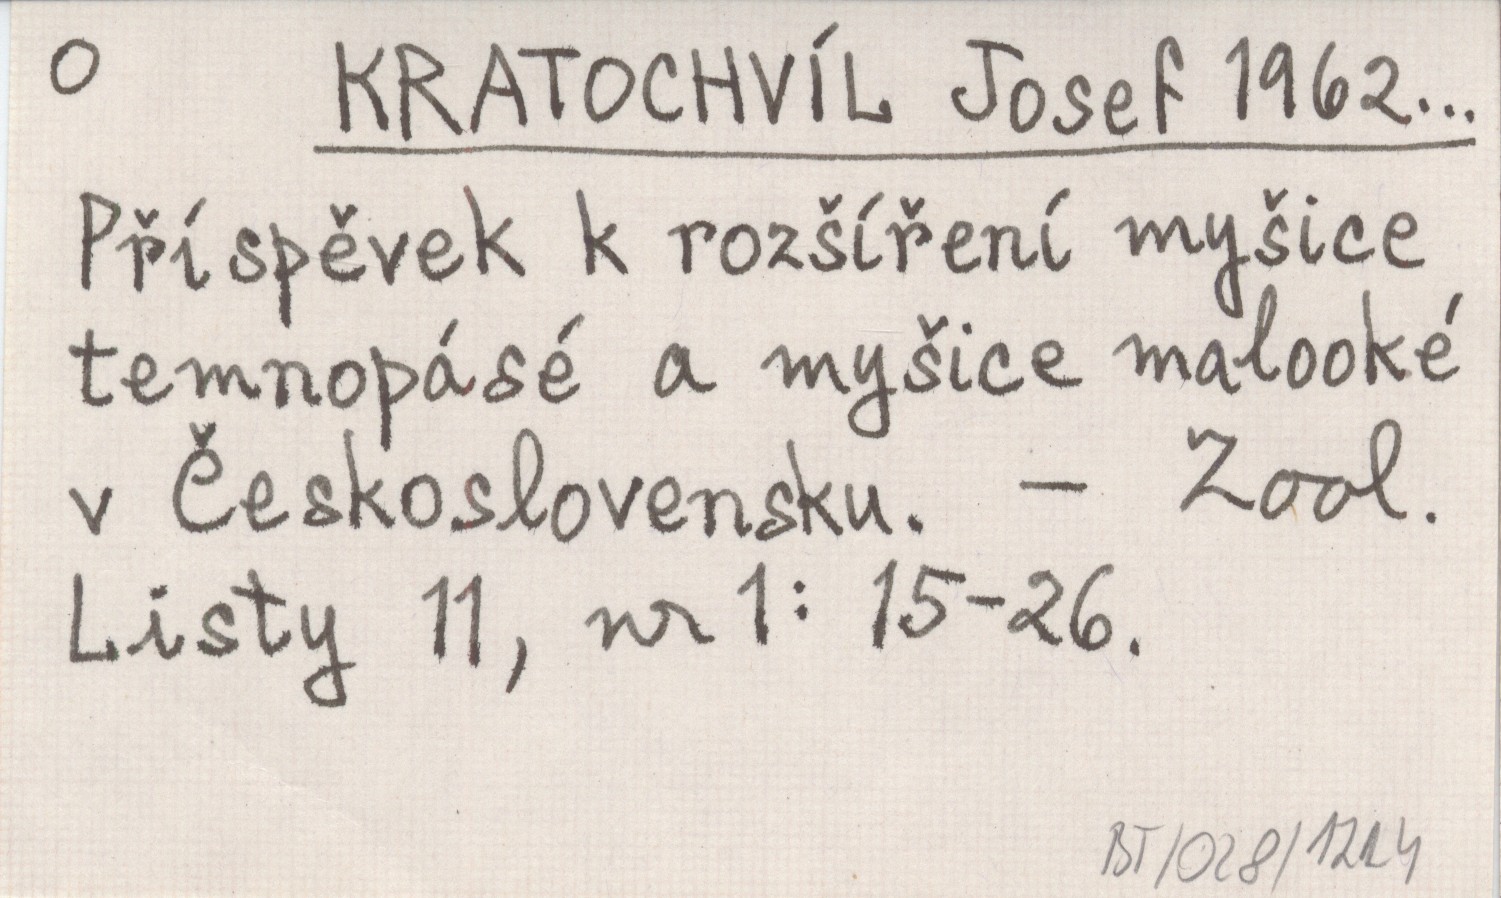 O KRATOCHVÍL Josef 1962...
Příspěvek k rozšíření myšice
temnopásé a myšice malooké
v Československu. – Zool.
Listy 11, nr 1: 15-26.
BT/028/1214